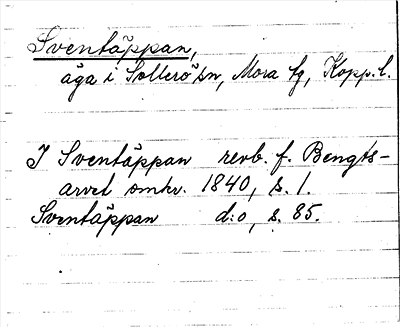 Sventäppan,
äga i Sollerö sn, Mora tg, Kopp. l.
I Sventäppan revb. f. Bengts-
arvet omkr. 1840, s. 1.
Sventäppan d:o, s. 85.